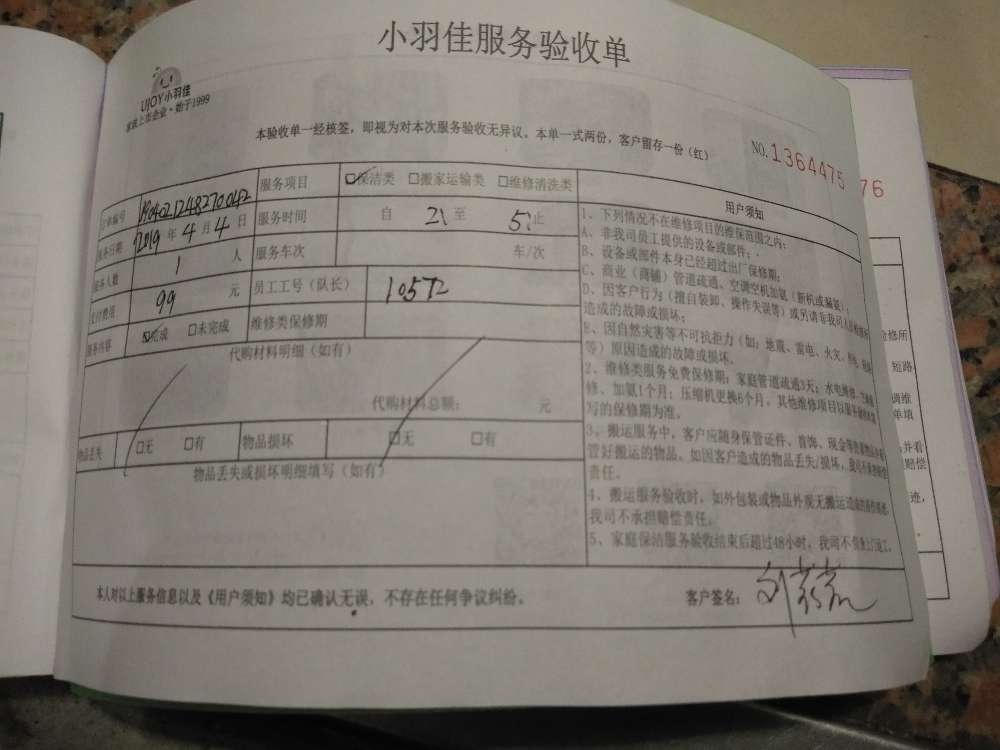 小羽佳服务验收单
UJOY小羽佳
家政上市企业·始于1999
本验收单一经核签,即视为对本次服务验收无异议。本单一式两份,客户留存一份(红)
NO.1364475
76
订单编号 1904021248270042 服务项目 ☐保洁类 ☐搬家运输类 ☐维修清洗类
服务日期 2019年4月4日 服务时间 自 2: 至 5: 止
服务人数 1 人 服务车次 车/次
支付费用 99 元 员工工号(队长) 10572
服务内容 ☑完成 ☐未完成 维修类保修期
代购材料明细(如有)
代购材料总额: 元
物品丢失 ☐无 ☐有 物品损坏 ☐无 ☐有
物品丢失或损坏明细填写(如有)
用户须知
1、下列情况不在维修项目的维保范围之内:
A、非我司员工提供的设备或部件;
B、设备或部件本身已经超过出厂保修期;
C、商业(商铺)管道疏通、空调空机加氨(断机或漏氨);
D、因客户行为(擅自装卸、操作失误等)或另请非我司人员
造成的故障或损坏;
E、因自然灾害等不可抗拒力(如:地震、雷电、火灾、
等)原因造成的故障或损坏。
2、维修类服务免费保修期:家庭管道疏通3天;水电维修、
修、加氨1个月;压缩机更换6个月。其他维修项目以服务
写的保修期为准。
3、搬运服务中,客户应随身保管证件、首饰、现金等
管好搬运的物品。如因客户造成的物品丢失/损坏,我司不承担赔偿
责任。
4、搬运服务验收时,如外包装或物品外观无搬运造成的
我司不承担赔偿责任。
5、家庭保洁服务验收结束后超过48小时,我司不免费上门返工。
检修所
短路
调维
单填
并看
赔偿
迹,
本人对以上服务信息以及《用户须知》均已确认无误,不存在任何争议纠纷。
客户签名: